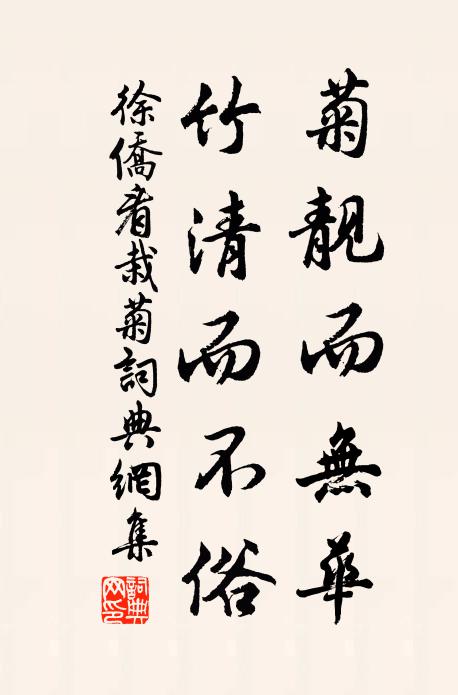 菊靚而無華
竹清而不俗
徐僑看栽菊詞典網集
詞典網印